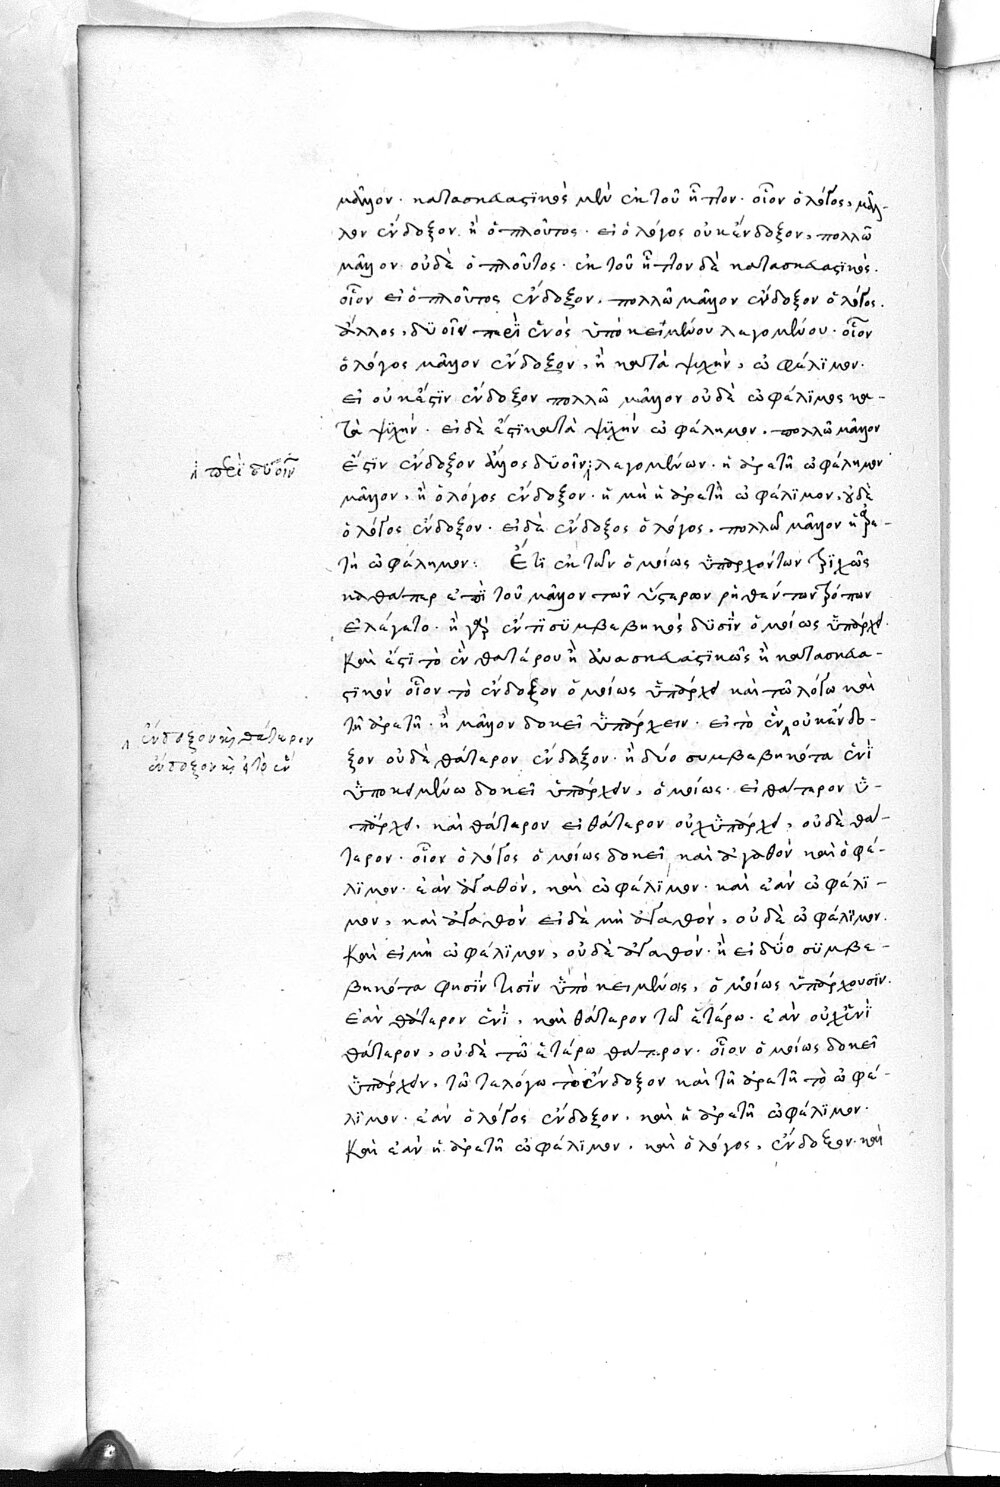 μᾶλλον· κατασκευαστικὸς μὲν ἐκ τοῦ ἧττον· οἷον ὁ λόγος, μᾶλ-
λον ἔνδοξον ἢ ὁ πλοῦτος· εἰ ὁ λόγος οὐκ ἔνδοξον, πολλῶ
μᾶλλον οὐδὲ ὁ πλοῦτος· ἐκ τοῦ ἧττον δὲ κατασκευαστικὸς.
οἷον εἰ ὁ πλοῦτος ἔνδοξον, πολλῶ μᾶλλον ἔνδοξον ὁ λόγος.
ἄλλος, δυοῖν περὶ ἑνὸς ὑποκειμένου λεγομένου· οἷον
ὁ λόγος μᾶλλον ἔνδοξον, ἢ κατὰ ψυχὴν, ὠφέλιμον·
εἰ οὐκ ἔστιν ἔνδοξον πολλῶ μᾶλλον οὐδὲ ὠφέλιμος κα-
τὰ ψυχήν· εἰ δὲ ἔστι κατὰ ψυχήν ὠφέλημον, πολλῶ μᾶλλον
ἔστιν ἔνδοξον ἄλλος δυοῖν λεγομένων· ἡ ἀρετὴ ὠφέλημον
μᾶλλον, ἢ ὁ λόγος ἔνδοξον· ἢ μὴ ἡ ἀρετὴ ὠφέλιμον, οὐδὲ
ὁ λόγος ἔνδοξον· εἰ δὲ ἔνδοξος ὁ λόγος, πολλῶ μᾶλλον ἡ ἀρε-
τὴ ὠφέλημον: Ἔτι ἐκ τῶν ὁμοίως ὑπαρχόντων τριχῶς
καθάπερ ἐπὶ τοῦ μᾶλλον τῶν ὕστερον ῥηθέντων τρόπων
ἐλέγετο· ἢ γὰρ ἕν τι συμβεβηκὸς δυσὶν ὁμοίως ὑπάρχει·
καὶ ἔστι τὸ ἓν θατέρου ἢ ἀνασκευαστικῶς ἢ κατασκευα-
στικὸν οἷον τὸ ἔνδοξον ὁμοίως ὑπάρχει καὶ τῶ λόγω καὶ
τῆ ἀρετῆ· ἢ μᾶλλον δοκεῖ ὑπάρχειν· εἰ τὸ ἓν οὐκ ἔνδο-
ξον οὐδὲ θάτερον ἔνδοξον· ἢ δύο συμβεβηκότα ἑνὶ
ὑποκειμένω δοκεῖ ὑπάρχειν, ὁμοίως· εἰ θάτερον ὑ-
πάρχει, καὶ θάτερον εἰ θάτερον οὐχ ὑπάρχει, οὐδὲ θά-
τερον· οἷον ὁ λόγος ὁμοίως δοκεῖ καὶ ἀγαθὸν καὶ ὀφέ-
λιμον· ἐὰν ἀγαθόν, καὶ ὠφέλιμον· καὶ ἐὰν ὠφέλι-
μον, καὶ ἀγαθὸν εἰ δὲ μὴ ἀγαθὸν, οὐδὲ ὠφέλιμον.
καὶ εἰ μὴ ὠφέλιμον, οὐδὲ ἀγαθὸν· ἢ εἰ δύο συμβε-
βηκότα φησίν τισὶν ὑποκειμένοις, ὁμοίως ὑπάρχουσιν.
ἐὰν θάτερον ἑνὶ, καὶ θάτερον τῶ ἑτέρω· ἐὰν οὐχ ἑνὶ
θάτερον, οὐδὲ τῶ ἑτέρω θάτερον· οἷον ὁμοίως δοκεῖ
ὑπάρχειν, τῶ τε λόγω τὸ ἔνδοξον καὶ τῆ ἀρετῆ τὸ ὠφέ-
λιμον· ἐὰν ὁ λόγος ἔνδοξον, καὶ ἡ ἀρετὴ ὠφέλιμον·
καὶ ἐὰν ἡ ἀρετὴ ὠφέλιμον, καὶ ὁ λόγος, ἔνδοξον· καὶ
περὶ δυοῖν
ἔνδοξον καὶ θάτερον
ἔνδοξον καὶ εἰ τὸ ἓν